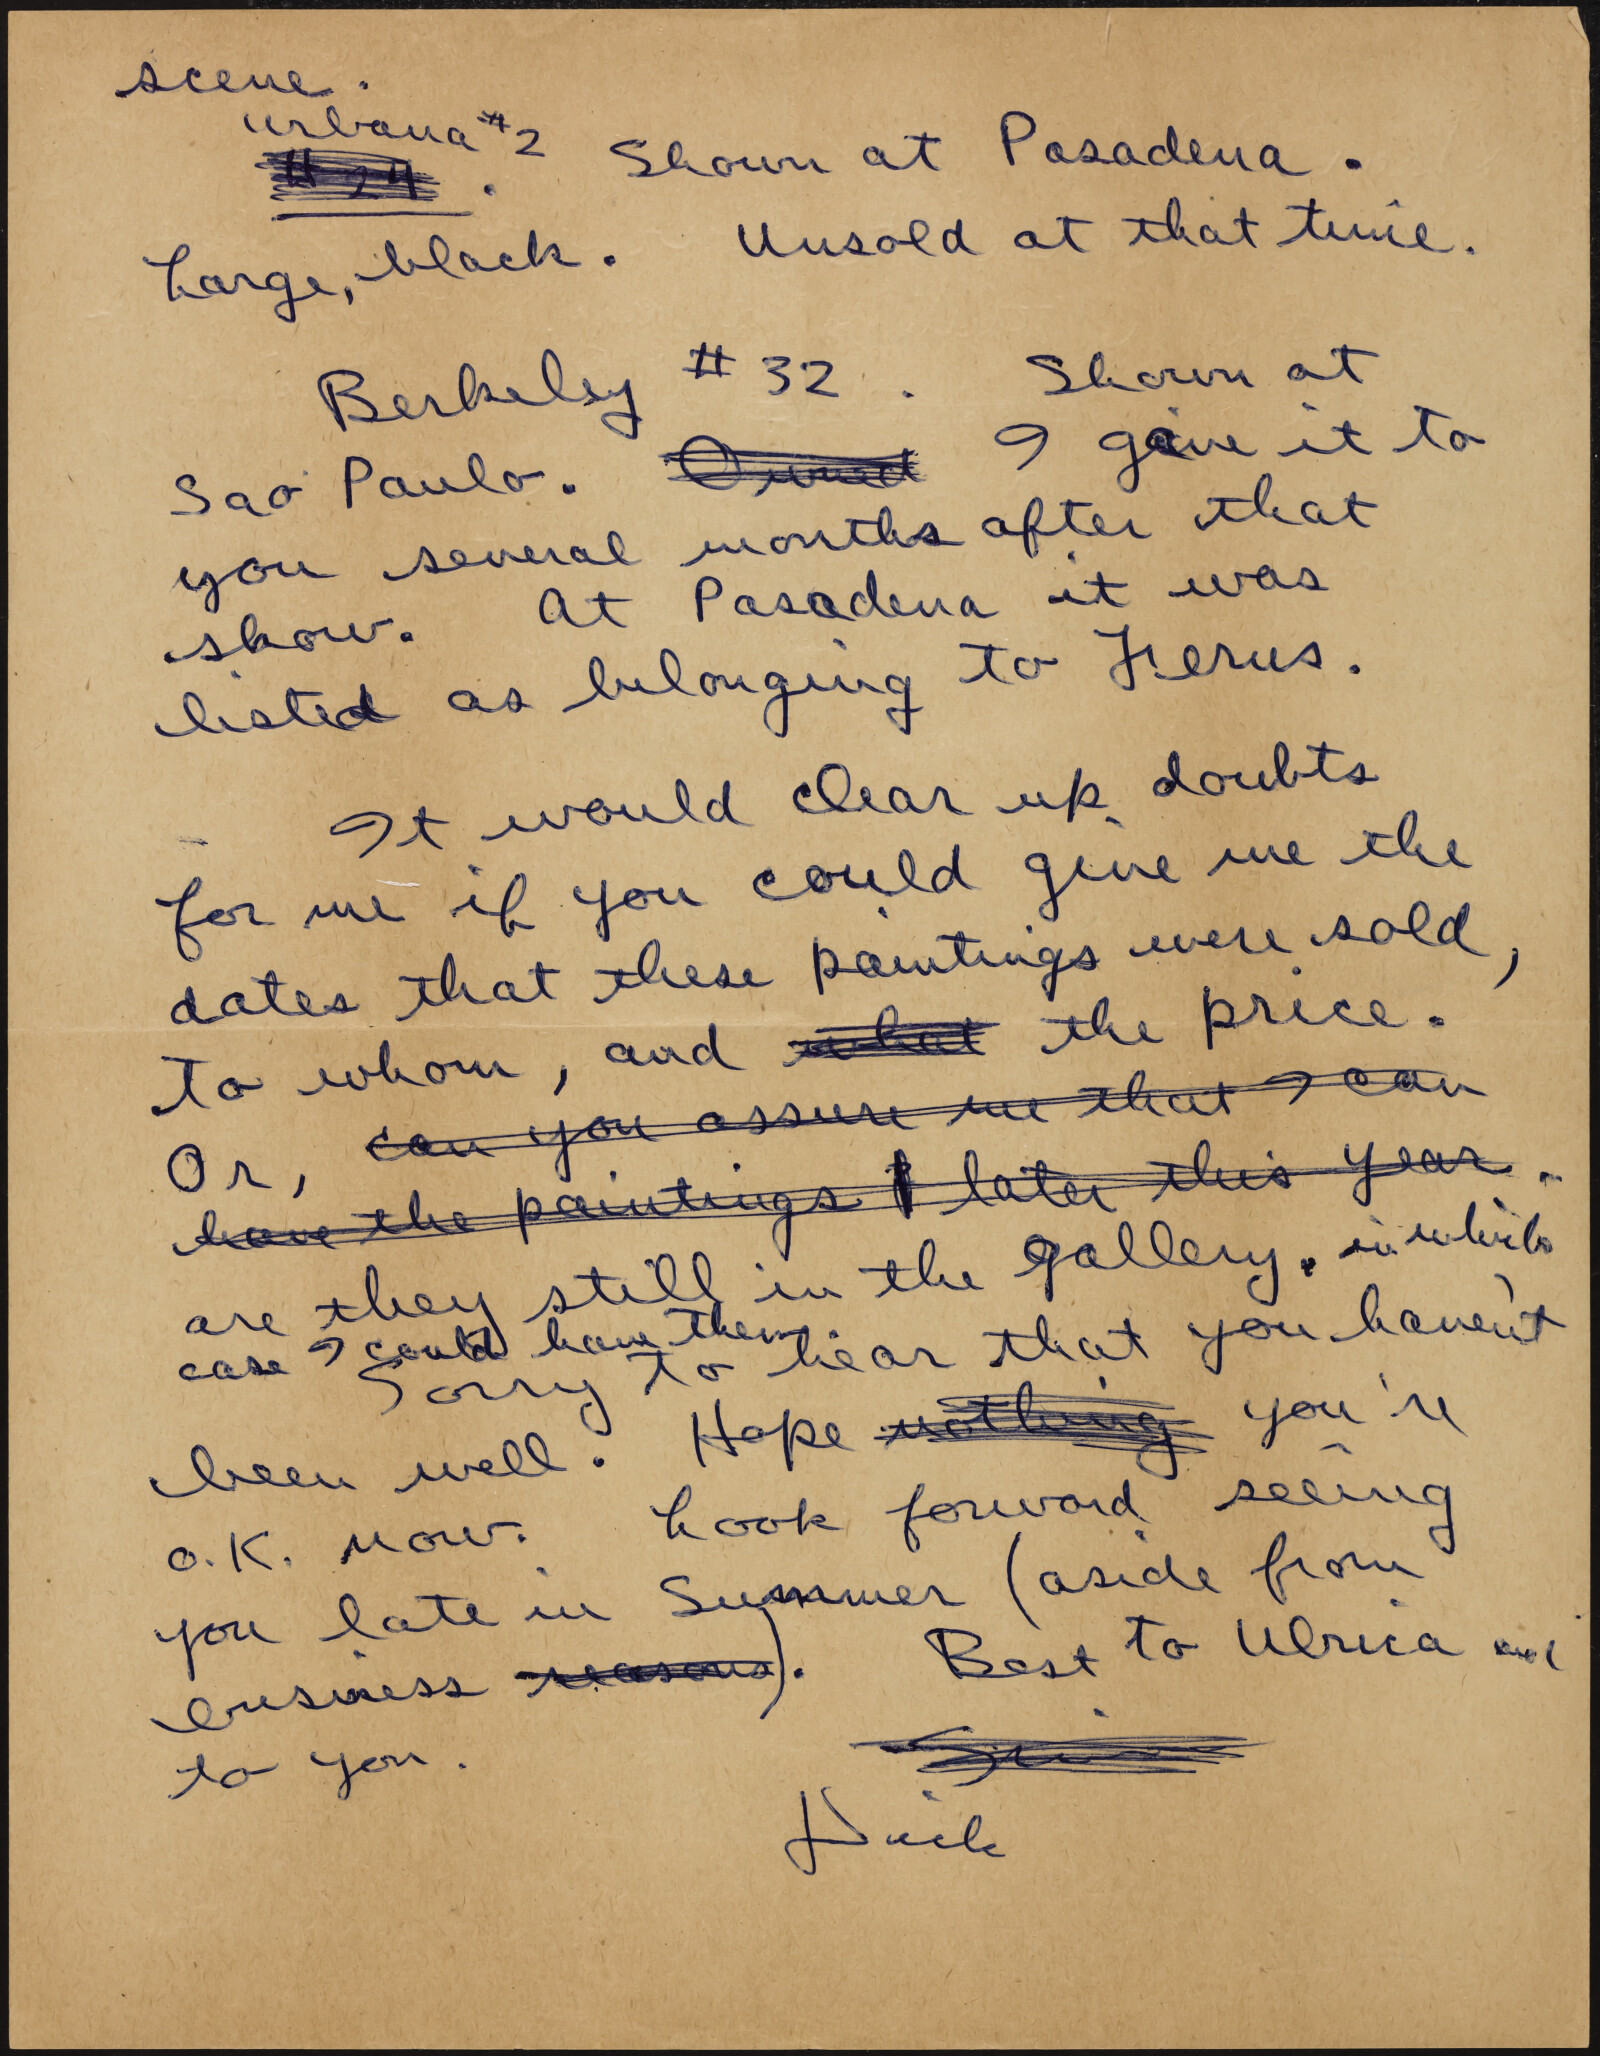 scene.
Urbana #2
#24. Shown at Pasadena.
Large, black. Unsold at that time.
Berkeley #32. Shown at
Sao Paulo. Owned I give it to
you several months after that
show. At Pasadena it was
listed as belonging to Ferus.
It would clear up doubts
for me if you could give me the
dates that these paintings were sold,
to whom, and what the price.
Or, can you assure me that I can
have the paintings later this year.
are they still in the gallery, in which
case I could have them.
Sorry to hear that you haven't
been well. Hope nothing you're
O.K. now. Look forward seeing
you late in Summer (aside from
business reasons). Best to Ulrica and
to you.
Dick